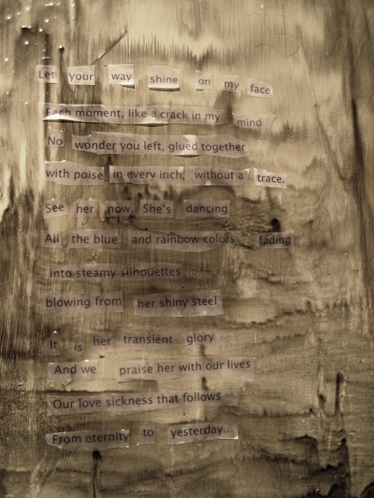 Let your way shine on my face
Each moment, like a crack in my mind
No wonder you left, glued together
with poise in every inch, without a trace.
See her now, She's dancing
All the blue and rainbow colors fading
into steamy silhouettes
blowing from her shiny steel
It is her transient glory
And we praise her with our lives
Our love sickness that follows
From eternity to yesterday...